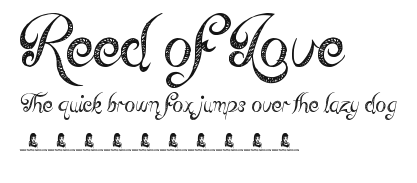 Reed of Love
The quick brown fox jumps over the lazy dog